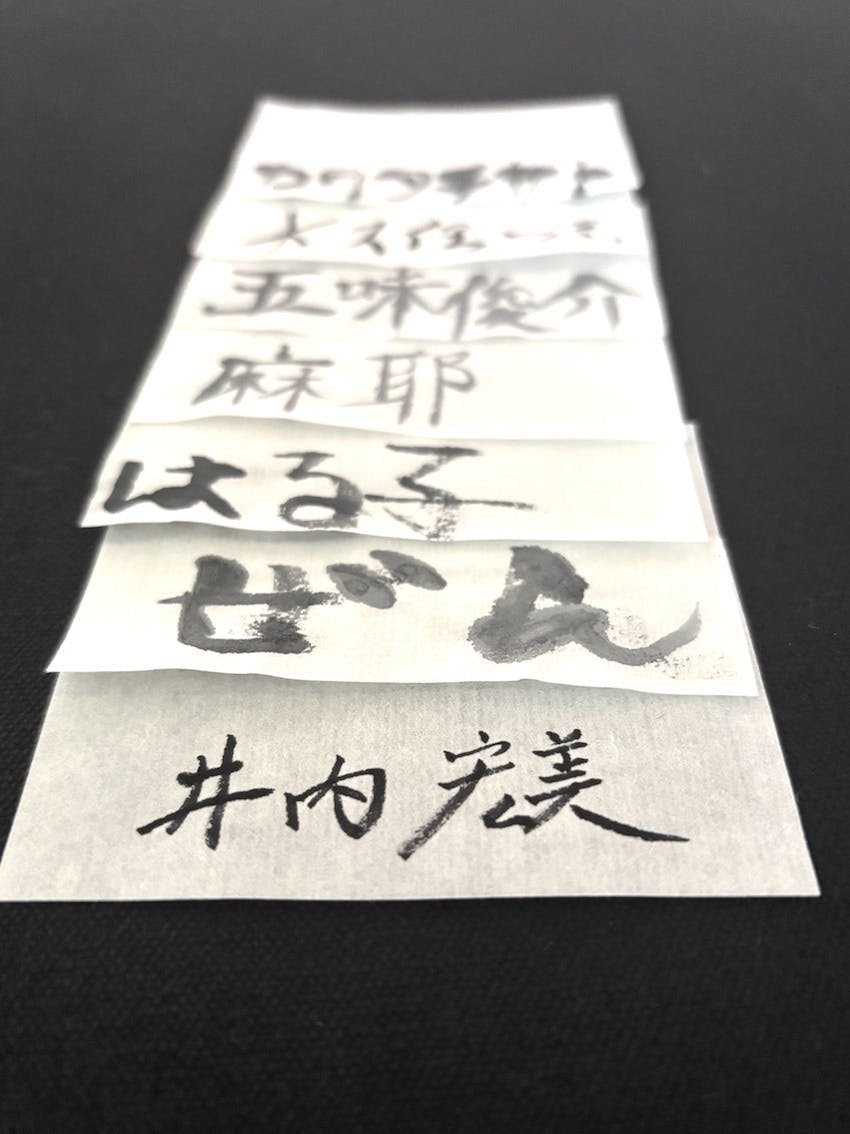 カワタチサト
大久住
五味俊介
麻耶
はる子
ぜん
井内宏美